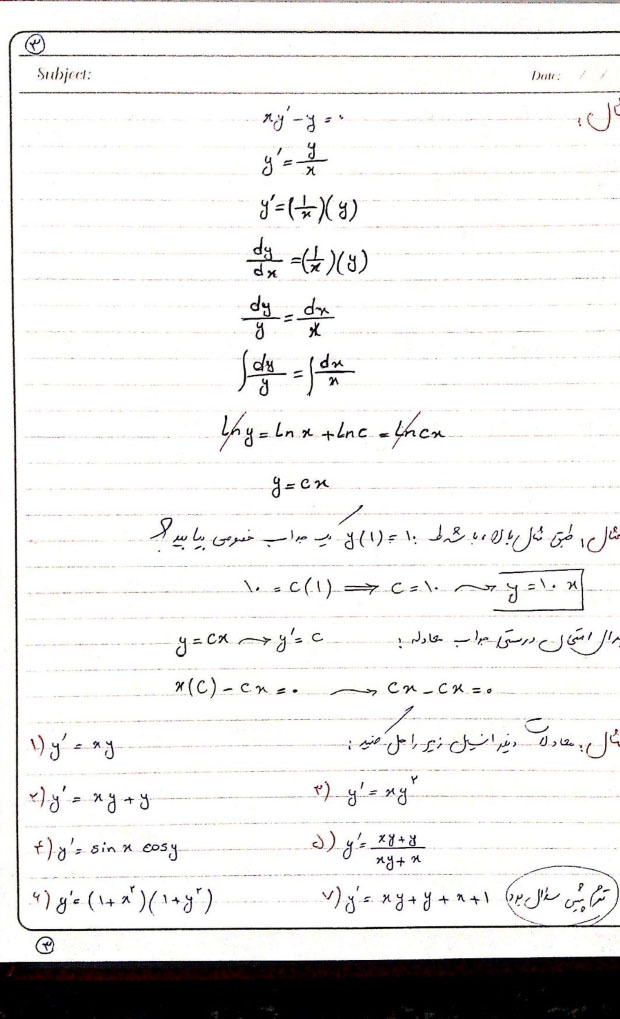 ۳
Subject: Date: / /
مثال:
xy' - y = ۰
y' = y/x
y' = (1/x)(y)
dy/dx = (1/x)(y)
dy/y = dx/x
∫dy/y = ∫dx/x
Ln y = Ln x + Ln c = Ln cx
y = cx
مثال: طبق مثال بالا، با شرط y(1) = ۱۰ یک جواب خصوصی بیابید؟
۱۰ = c(1) ⟹ c = ۱۰ ⇝ y = ۱۰ x
برای امتحان درستی جواب معادله: y = cx ⇝ y' = c
x(c) - cx = ۰ ⟶ cx - cx = ۰
مثال: معادلات دیفرانسیل زیر را حل کنید:
۱) y' = xy
۲) y' = xy + y ۳) y' = xy^۲
۴) y' = sin x cos y ۵) y' = (xy + y)/(xy + x)
۶) y' = (1 + x^۲)(1 + y^۲) ۷) y' = xy + y + x + 1
۳